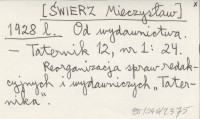 [ŚWIERZ Mieczysław]
1928 l. Od wydawnictwa.
— Taternik 12, nr 1: 24.
Reorganizacja spraw redak-
cyjnych i wydawniczych „Tater-
nika".